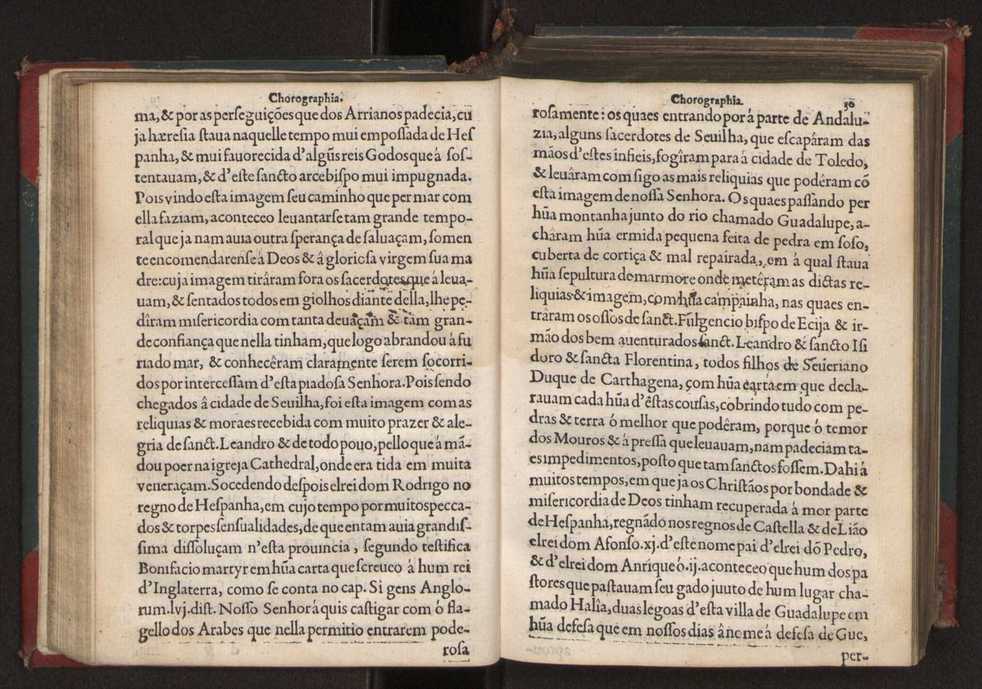 Chorographia.
ma, & por as perseguições que dos Arrianos padecia, cu
ja hæresia staua naquelle tempo mui empossada de Hes
panha, & mui fauorecida d'algũs reis Godos que á sos-
tentauam, & d'este sancto arcebispo mui impugnada.
Pois vindo esta imagem seu caminho que per mar com
ella faziam, aconteceo leuantarse tam grande tempo-
ral que ja nam auia outra sperança de saluaçam, somen
te encomendarense á Deos & â gloriosa virgem sua ma
dre: cuja imagem tiráram fora os sacerdotes que á leua-
uam, & sentados todos em giolhos diante della, lhe pe-
diram misericordia com tanta deuaçam & tam gran-
de confiança que nella tinham, que logo abrandou á fu
ria do mar, & conhecêram claramente serem socorri-
dos por intercessam d'esta piadosa Senhora. Pois sendo
chegados â cidade de Seuilha, foi esta imagem com as
reliquias & moraes recebida com muito prazer & ale-
gria de sanct. Leandro & de todo pouo, pello que á mã-
dou poer na igreja Cathedral, onde era tida em muita
veneraçam. Socedendo despois elrei dom Rodrigo no
regno de Hespanha, em cujo tempo por muitos pecca-
dos & torpes sensualidades, de que entam auia grandis-
sima dissoluçam n'esta prouincia, segundo testifica
Bonifacio martyr em hũa carta que screueo á hum rei
d'Inglaterra, como se conta no cap. Si gens Anglo-
rum. lvj. dist. Nosso Senhor á quis castigar com ó fla-
gello dos Arabes que nella permitio entrarem pode-
rosa
Chorographia. 36
rosamente: os quaes entrando por á parte de Andalu-
zia, alguns sacerdotes de Seuilha, que escapáram das
mãos d'estes infieis, fogiram para á cidade de Toledo,
& leuáram consigo as mais reliquias que podêram cõ
esta imagem de nossa Senhora. Os quaes passando per
hũa montanha junto do rio chamado Guadalupe, a-
cháram hũa ermida pequena feita de pedra em soso,
cuberta de cortiça & mal repairada, em á qual staua
hũa sepultura de marmore onde metêram as dictas re-
liquias & imagem, com hũa campainha, nas quaes en-
tráram os ossos de sanct. Fulgencio bispo de Ecija & ir-
mão dos bem auenturados sanct. Leandro & sancto Isi
doro & sancta Florentina, todos filhos de Seueriano
Duque de Carthagena, com hũa carta em que decla-
rauam cada hũa d'estas cousas, cobrindo tudo com pe-
dras & terra ó melhor que podêram, porque ó temor
dos Mouros & á pressa que leuauam, nam padeciam ta-
es impedimentos, posto que tam sanctos fossem. Dahi á
muitos tempos, em que ja os Christãos por bondade &
misericordia de Deos tinham recuperada á mor parte
de Hespanha, regnãdo nos regnos de Castella & de Lião
elrei dom Afonso. xj. d'este nome pai d'elrei dõ Pedro,
& d'elrei dom Anrique ó. ij. aconteceo que hum dos pa
stores que pastauam seu gado juuto de hum lugar cha-
mado Halîa, duas legoas d'esta villa de Guadalupe em
hũa defesa que em nossos dias â nome á defesa de Gue,
per-